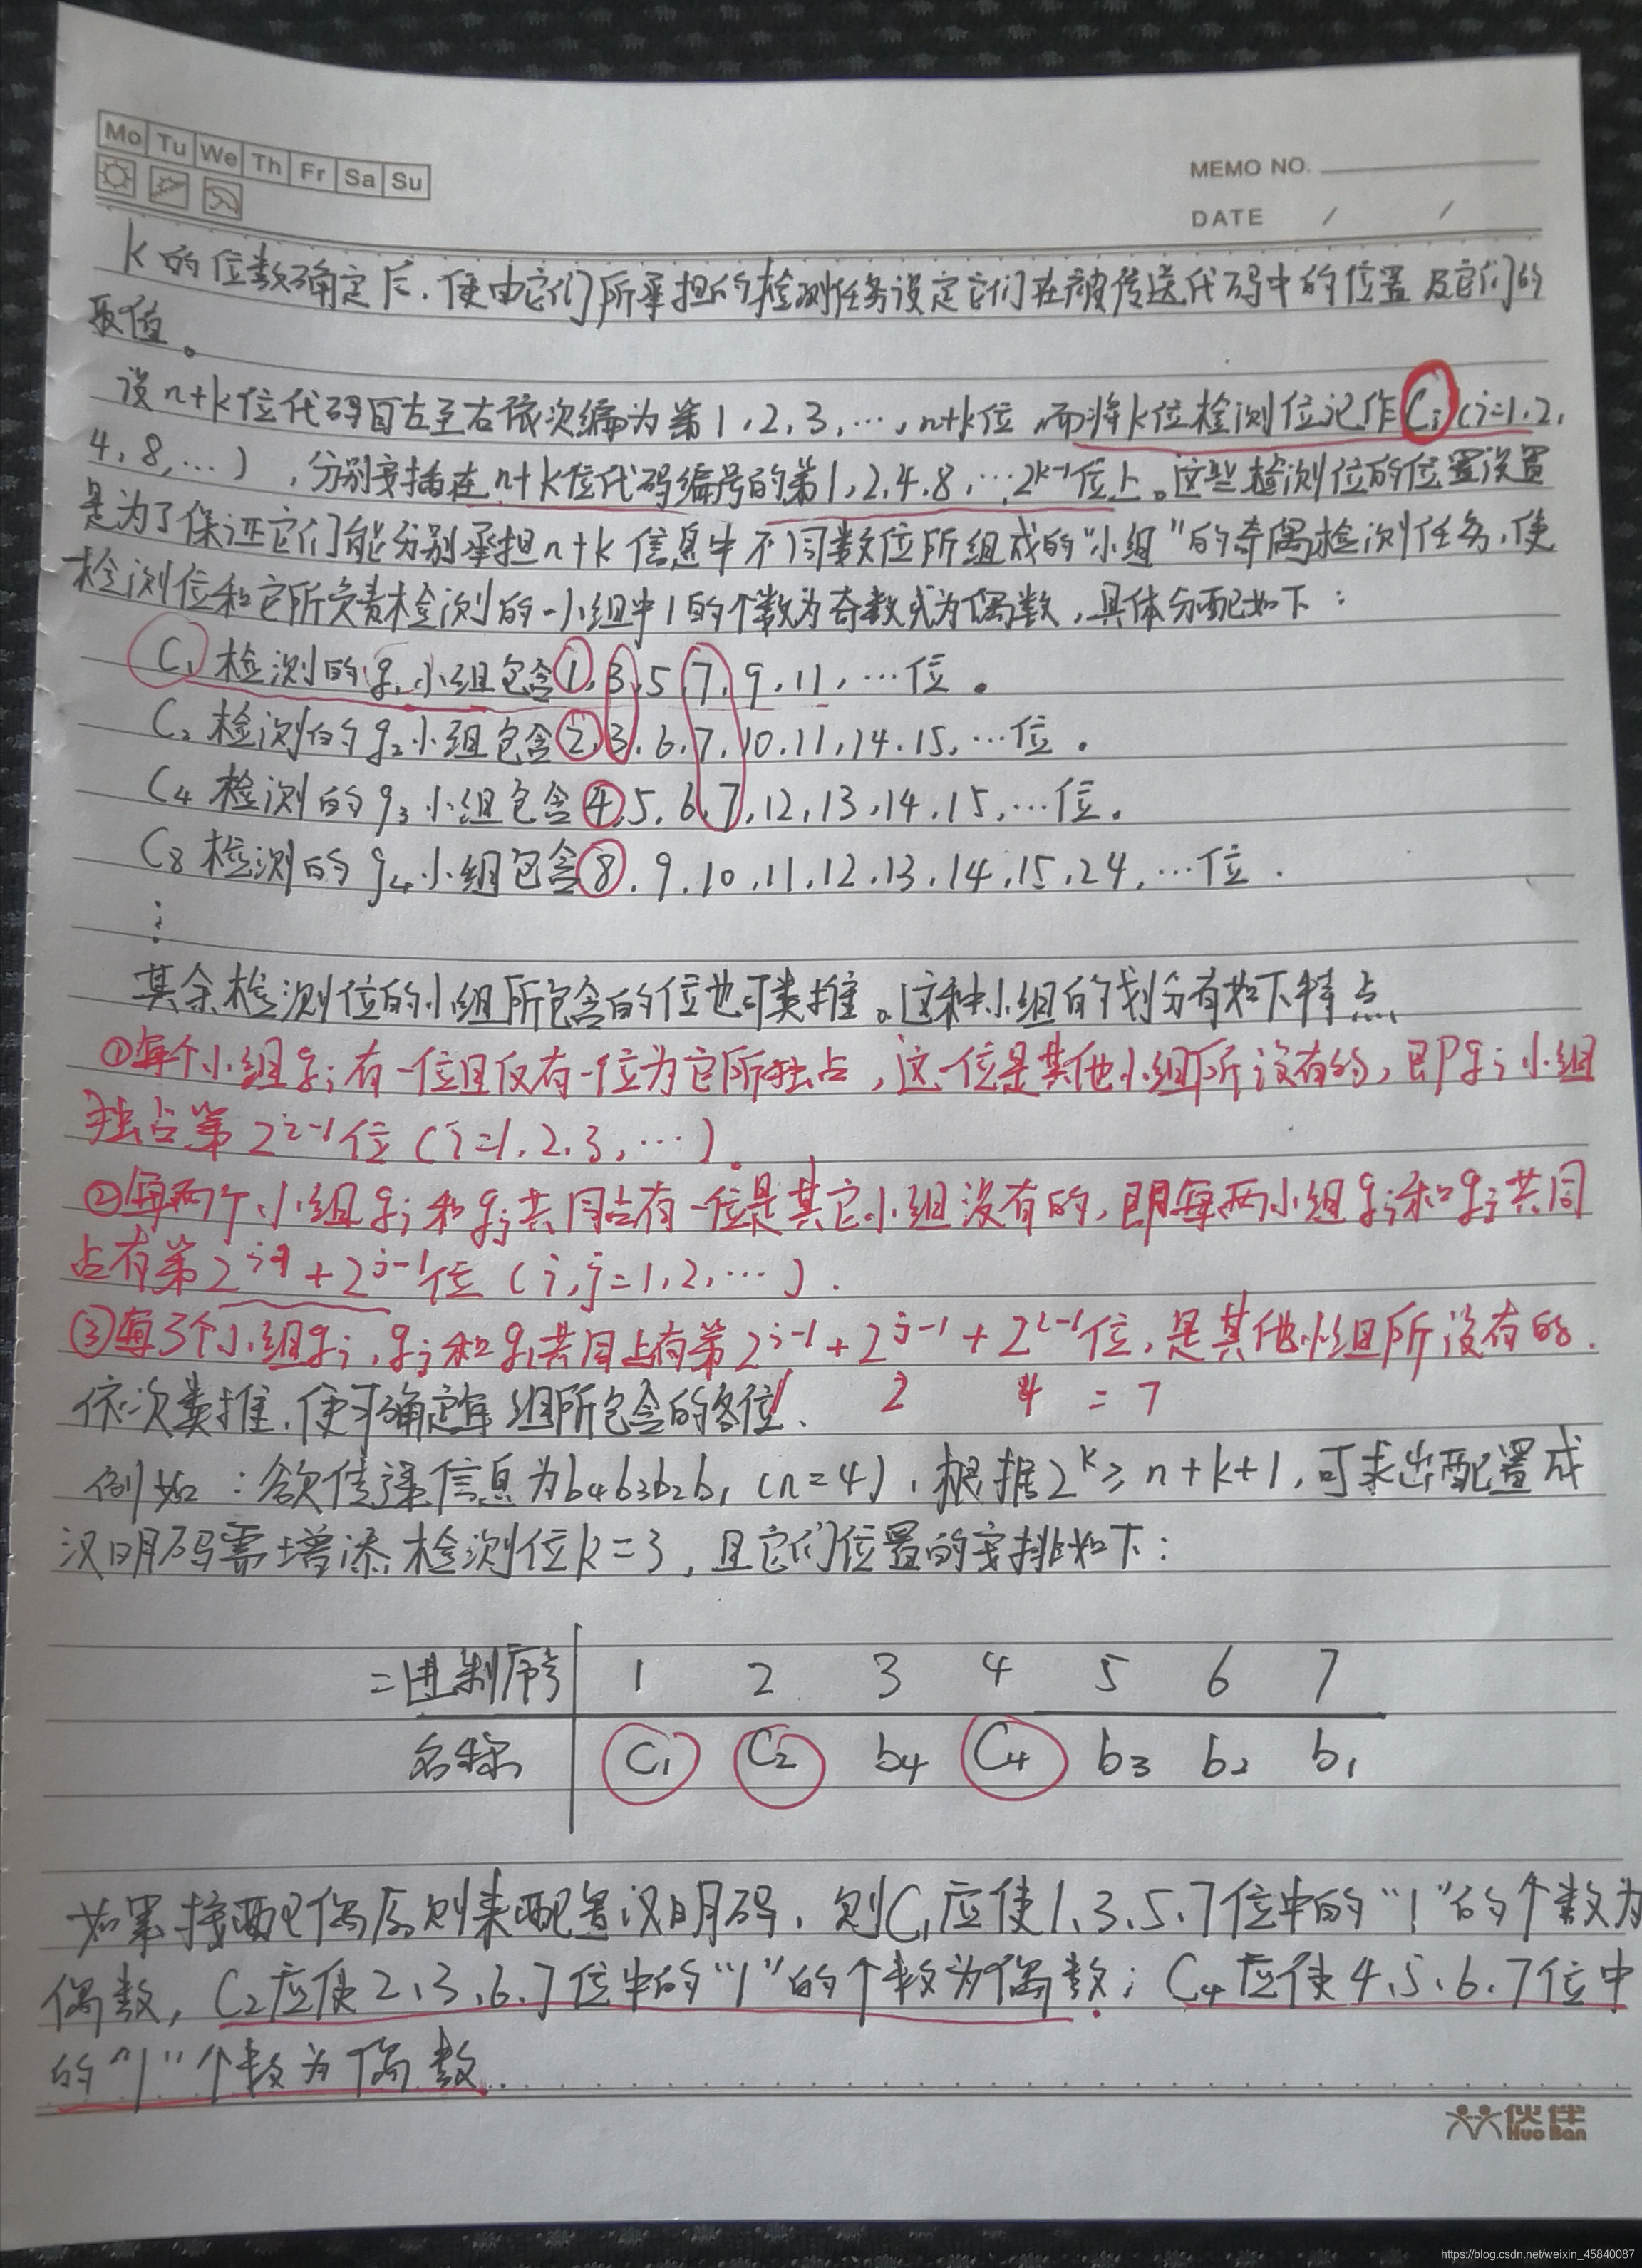 Mo Tu We Th Fr Sa Su
MEMO NO.
DATE / /
k的位数确定后,便由它们所承担的检测任务设定它们在被传送代码中的位置及它们的
取值。
设n+k位代码自左至右依次编为第1,2,3,…,n+k位,而将k位检测位记作Ci(i=1,2,
4,8,…),分别安插在n+k位代码编号的第1,2,4,8,…2^{k-1}位上。这些检测位的位置设置
是为了保证它们能分别承担n+k信息中不同数位所组成的“小组”的奇偶检测任务,使
检测位和它所负责检测的一小组中1的个数为奇数或为偶数,具体分配如下:
C1检测的g1小组包含①,3,5,7,9,11,…位。
C2检测的g2小组包含②,3,6,7,10,11,14,15,…位.
C4检测的g3小组包含④,5,6,7,12,13,14,15,…位.
C8检测的g4小组包含⑧,9,10,11,12,13,14,15,24,…位.
⋮
其余检测位的小组所包含的位也可类推。这种小组的划分有如下特点
①每个小组gi有一位且仅有一位为它所独占,这一位是其他小组所没有的,即gi小组
独占第2^{i-1}位(i=1,2,3,…)。
②每两个小组gi和gj共同占有一位是其它小组没有的,即每两小组gi和gj共同
占有第2^{i-1}+2^{j-1}位(i,j=1,2,…).
③每3个小组gi,gj和gl共同占有第2^{i-1}+2^{j-1}+2^{l-1}位,是其他小组所没有的.
1 2 4 = 7
依次类推,便可确定每组所包含的各位.
例如:欲传递信息为b4b3b2b1(n=4),根据2^k≥n+k+1,可求出配置成
汉明码需增添检测位k=3,且它们位置的安排如下:
二进制序号 1 2 3 4 5 6 7
名称 C1 C2 b4 C4 b3 b2 b1
如果按配偶原则来配置汉明码,则C1应使1、3、5、7位中的“1”的个数为
偶数,C2应使2、3、6、7位中的“1”的个数为偶数;C4应使4、5、6、7位中
的“1”个数为偶数.
伙伴
Huo Ban
https://blog.csdn.net/weixin_45840087